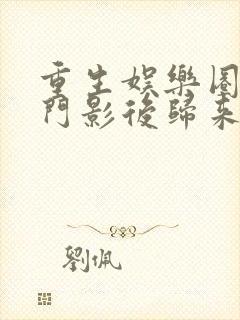 重生娛樂圈
門影後歸來
劉佩